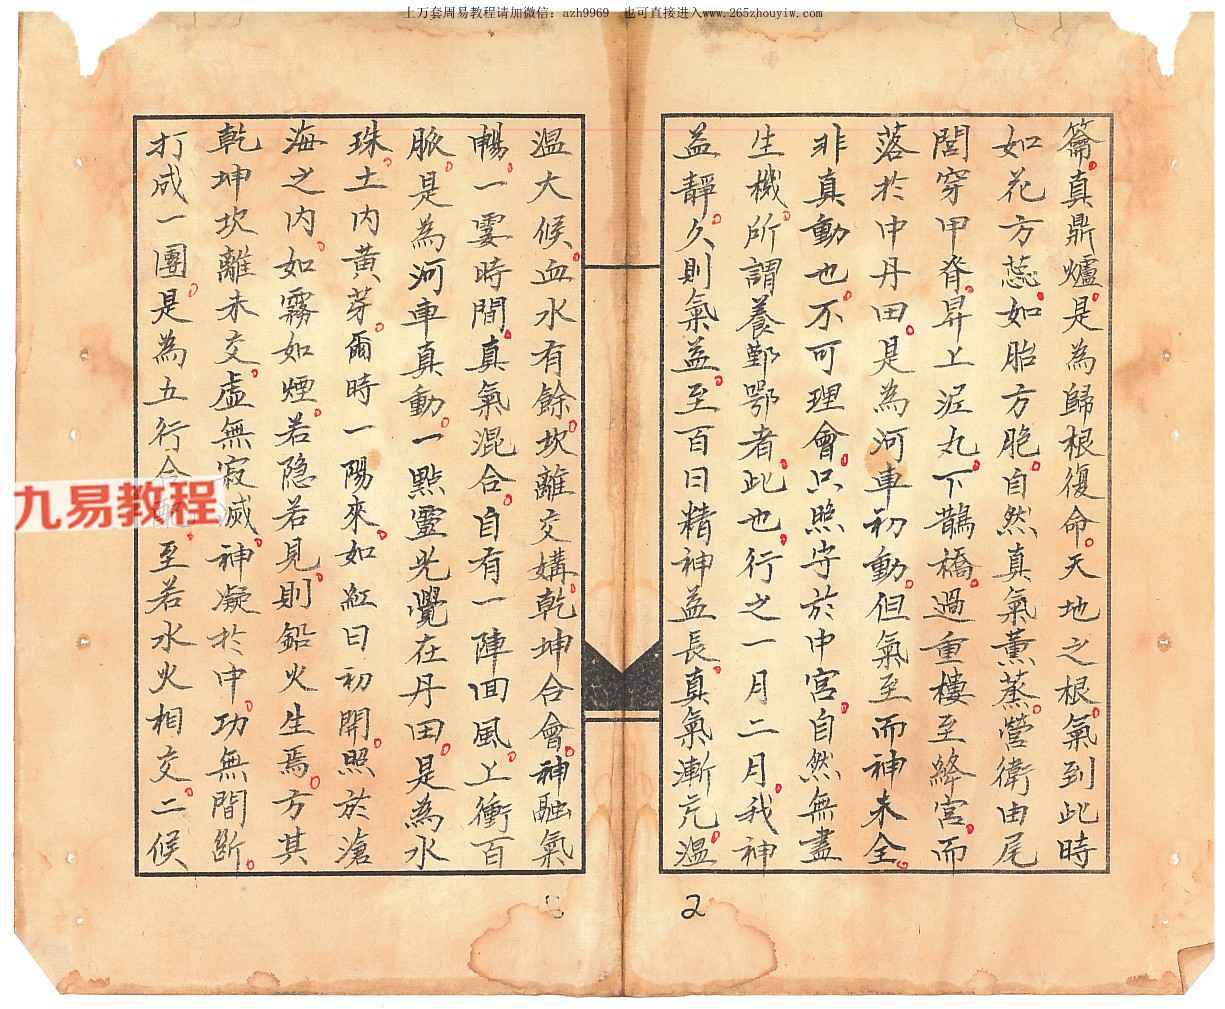 上万套周易教程请加微信：azh9969　也可直接进入www.265zhouyiw.com
籥。真鼎爐。是為歸根復命。天地之根。氣到此時
如花方蕊。如胎方胞。自然真氣薰蒸。營衛由尾
閭穿甲脊。昇上泥丸。下鵲橋。過重樓至絳宮。而
落於中丹田。是為河車初動。但氣至而神未全。
非真動也。不可理會。只照守於中宮。自然無盡
生機。所謂養鄞鄂者。此也。行之一月二月。我神
益靜。久則氣益。至百日精神益長。真氣漸充。溫
溫大候。血水有餘。坎離交媾。乾坤合會。神融氣
暢。一霎時間。真氣混合。自有一陣回風。上衝百
脈。是為河車真動。一點靈光覺在丹田。是為水
珠。土內黃芽。爾時一陽來。如紅日初開。照於滄
海之內。如霧如煙。若隐若見。則鉛火生焉。方其
乾坤坎離未交。虛無寂滅。神凝於中。功無間斷。
打成一團。是為五行合。至若水火相交。二候
九易教程
2